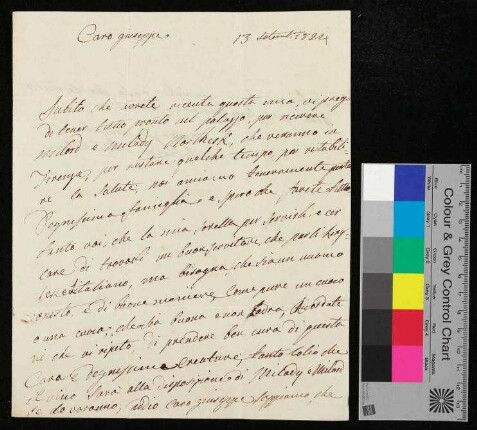 Caro giuseppe.
13 Setemb. 1824
Subito che avrete riceuta questa mia, vi prego
di tener tutto pronto nel palazzo, per ricevere
Milord e Milady, che veranno in
Firenze, per restare qualche tempo, per ristabili
re la Salute, noi amiamo teneramente questa
Degnissima famiglia, e spero che farete tutto
tanto voi, che la mia per servirli e cer
care di trovare un buon servitore, che parli
ed italiano, ma bisogna che sia un uomo
onesto, e di buone maniere, come pure un cuoco
o una cuoca, che sia buona e non ladra, Ricordate
vi che vi ripeto di prendere ben cura di questa
Cara e degnissime creature, tanto l'olio che
il vino sarà alla disposizione di Milady e Milord
se lo voranno, addio Caro giuseppe che
Colour & Grey Control Chart